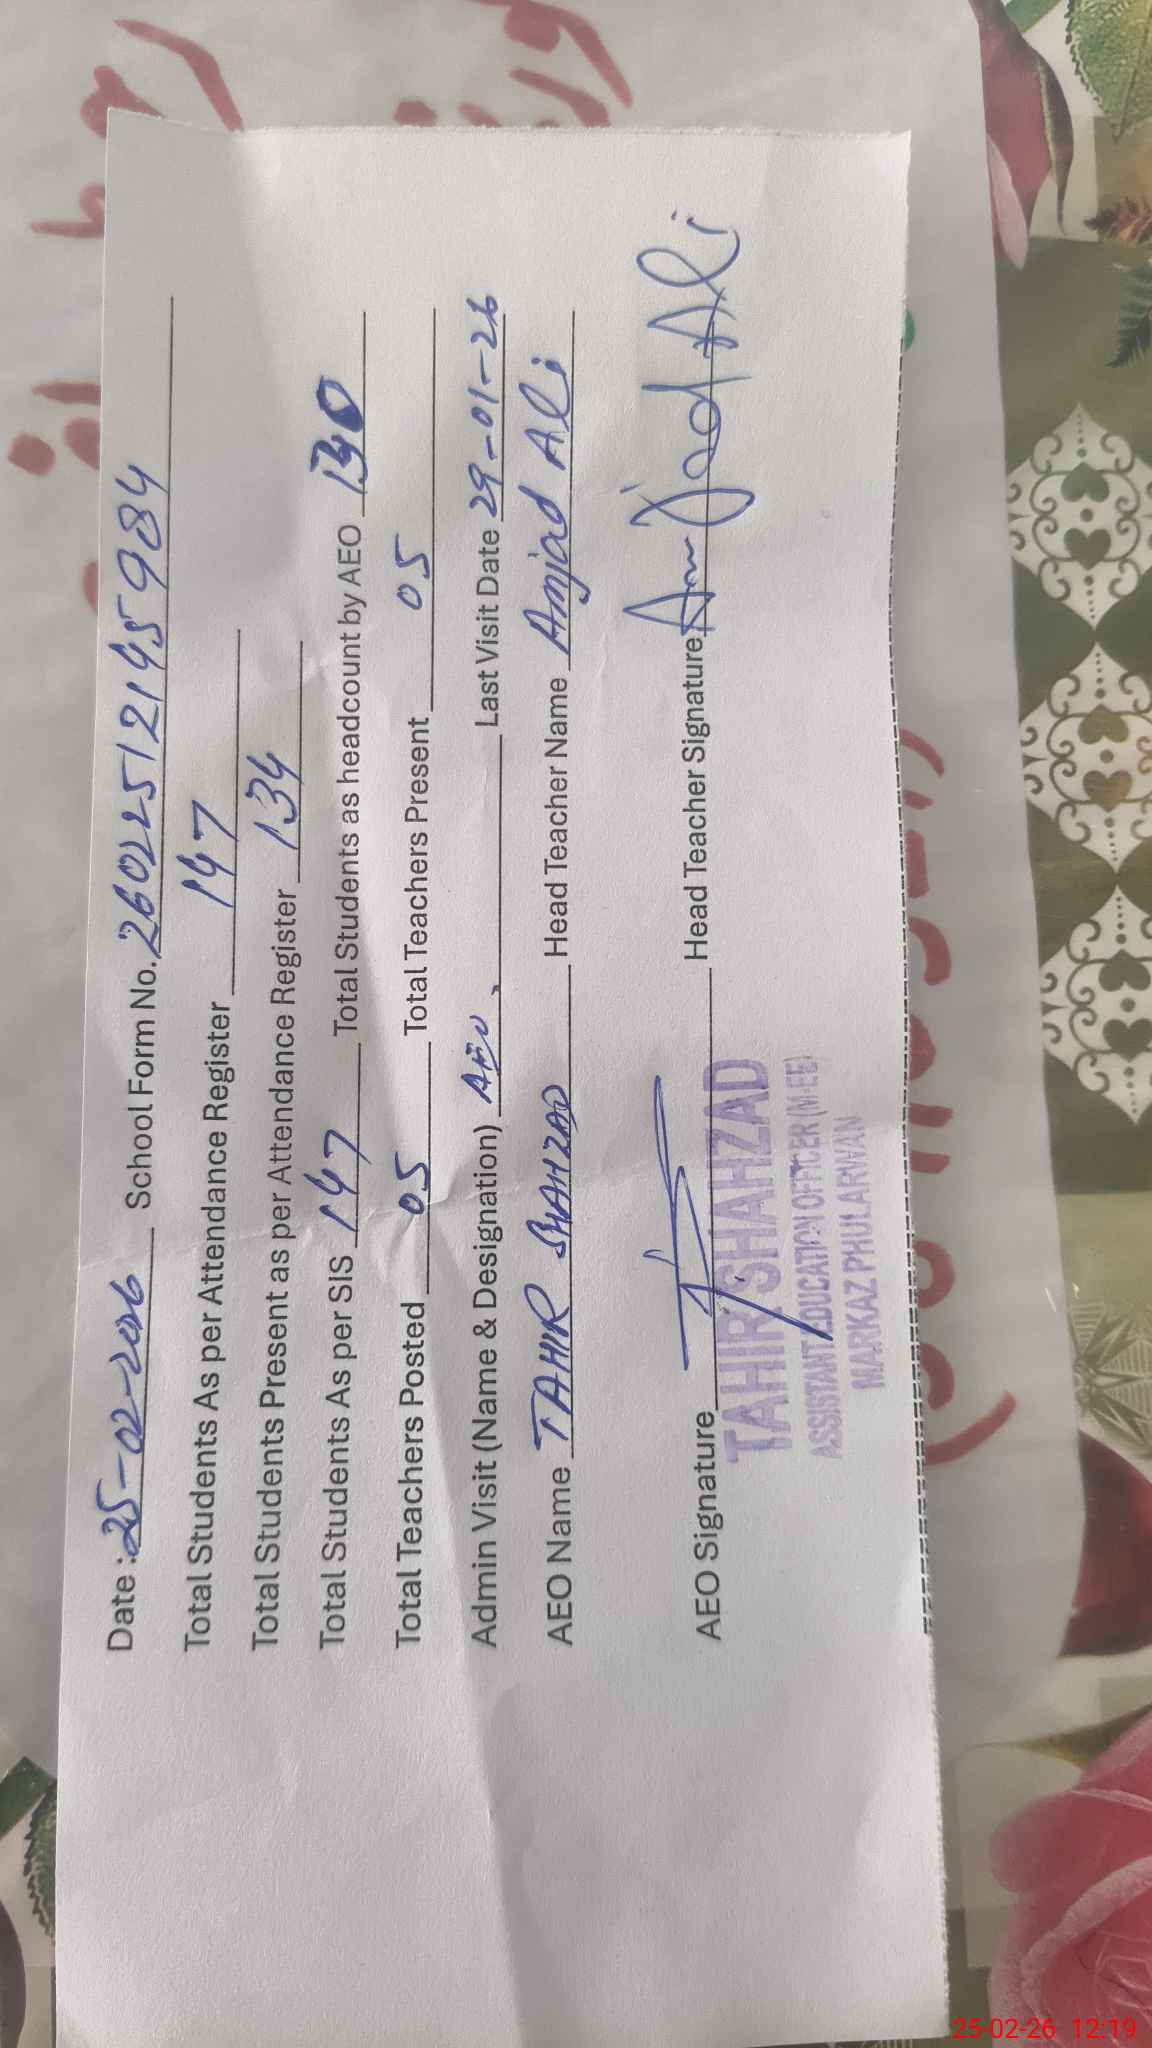 Date : 25-02-2026 School Form No. 26022512145984
Total Students As per Attendance Register 147
Total Students Present as per Attendance Register 134
Total Students As per SIS 147 Total Students as headcount by AEO
Total Teachers Posted 05 Total Teachers Present 05
Admin Visit (Name & Designation) AEO, Last Visit Date 29-01-26
AEO Name TAHIR SHAHZAD Head Teacher Name Amjad Ali
AEO Signature Head Teacher Signature Amjad Ali
TAHIR SHAHZAD
ASSISTANT EDUCATION OFFICER (M-EE)
MARKAZ PHULARWAN
25-02-26 12:19